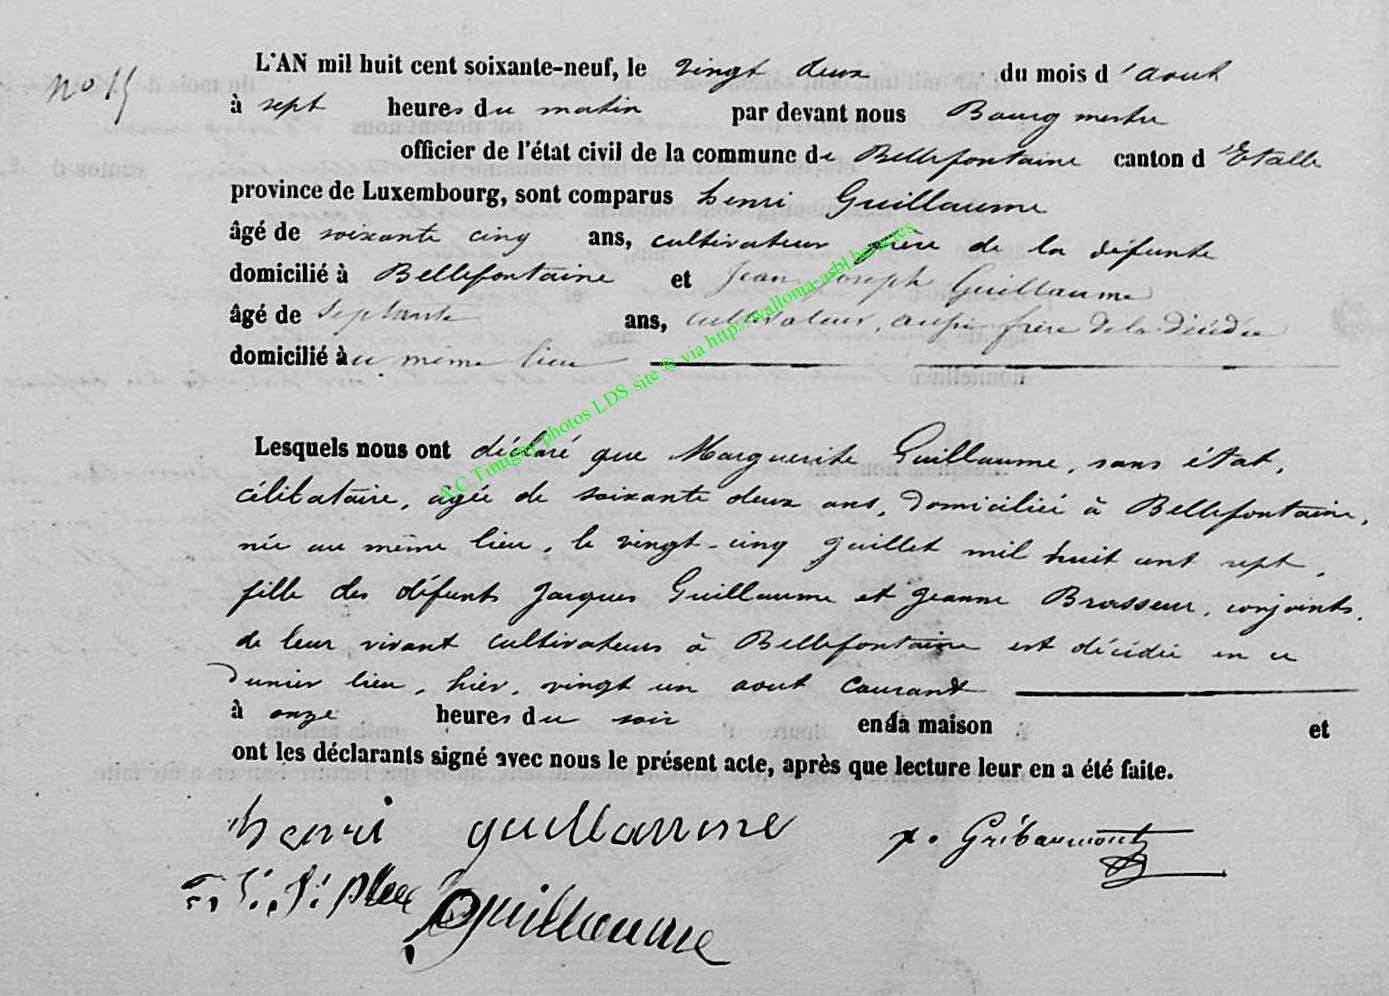 No 15
L'AN mil huit cent soixante-neuf, le vingt deux du mois d'aout
à sept heures du matin par devant nous Bourgmestre
officier de l'état civil de la commune de Bellefontaine canton d'Etalle
province de Luxembourg, sont comparus henri Guillaume
âgé de soixante cinq ans, cultivateur frère de la défunte
domicilié à Bellefontaine et Jean Joseph Guillaume
âgé de Septante ans, cultivateur, aussi frère de la décédée
domicilié au même lieu
Lesquels nous ont déclaré que Marguerite Guillaume, sans état,
célibataire, agée de soixante deux ans, domiciliée à Bellefontaine,
née au même lieu, le vingt-cinq Juillet mil huit cent sept,
fille des défunts Jacques Guillaume et Jeanne Brasseur, conjoints,
de leur vivant cultivateurs à Bellefontaine est décédée en ce
dernier lieu, hier, vingt un aout Courant
à onze heures du soir en sa maison et
ont les déclarants signé avec nous le présent acte, après que lecture leur en a été faite.
henri guillaume
Gribaumont
guillaume
A.C Tintigny photos LDS site ® via http://wallonia-asbl.be/actes